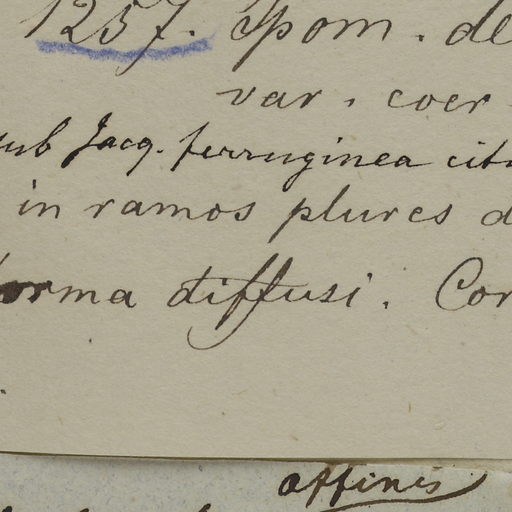 1257. Ipom. de
var. coer
sub Jacq. ferruginea cit
in ramos plures d
forma diffusi. Cor
affinis